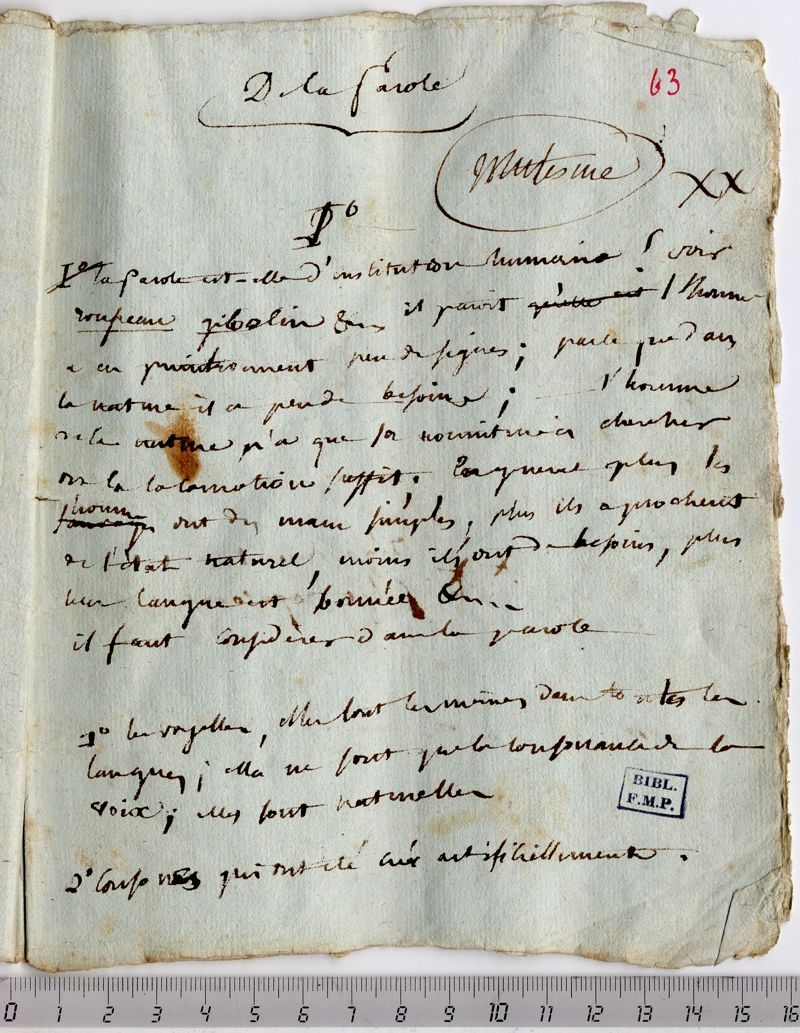 De la parole
63
XX
P°
1° la parole est-elle d'institution humaine ? voir
il paroit qu'elle est l'homme
a peu de signes; parce que dans
la nature il a peu de besoins; l'homme
de la nature n'a que sa nourriture à chercher
or la locomotion suffit. En general plus les
hommes ont des mœurs simples, plus ils aprochent
de l'état naturel, moins ils ont de besoins, plus
leur langue est bornée &...
il faut considerer dans la parole
1° les voyelles, elles sont les mêmes dans toutes les
langues; elle ne sont que la consonnance de la
voix; elles sont naturelles
BIBL.
F.M.P.
2° consones qui ont été créé artificiellement.
0 1 2 3 4 5 6 7 8 9 10 11 12 13 14 15 16